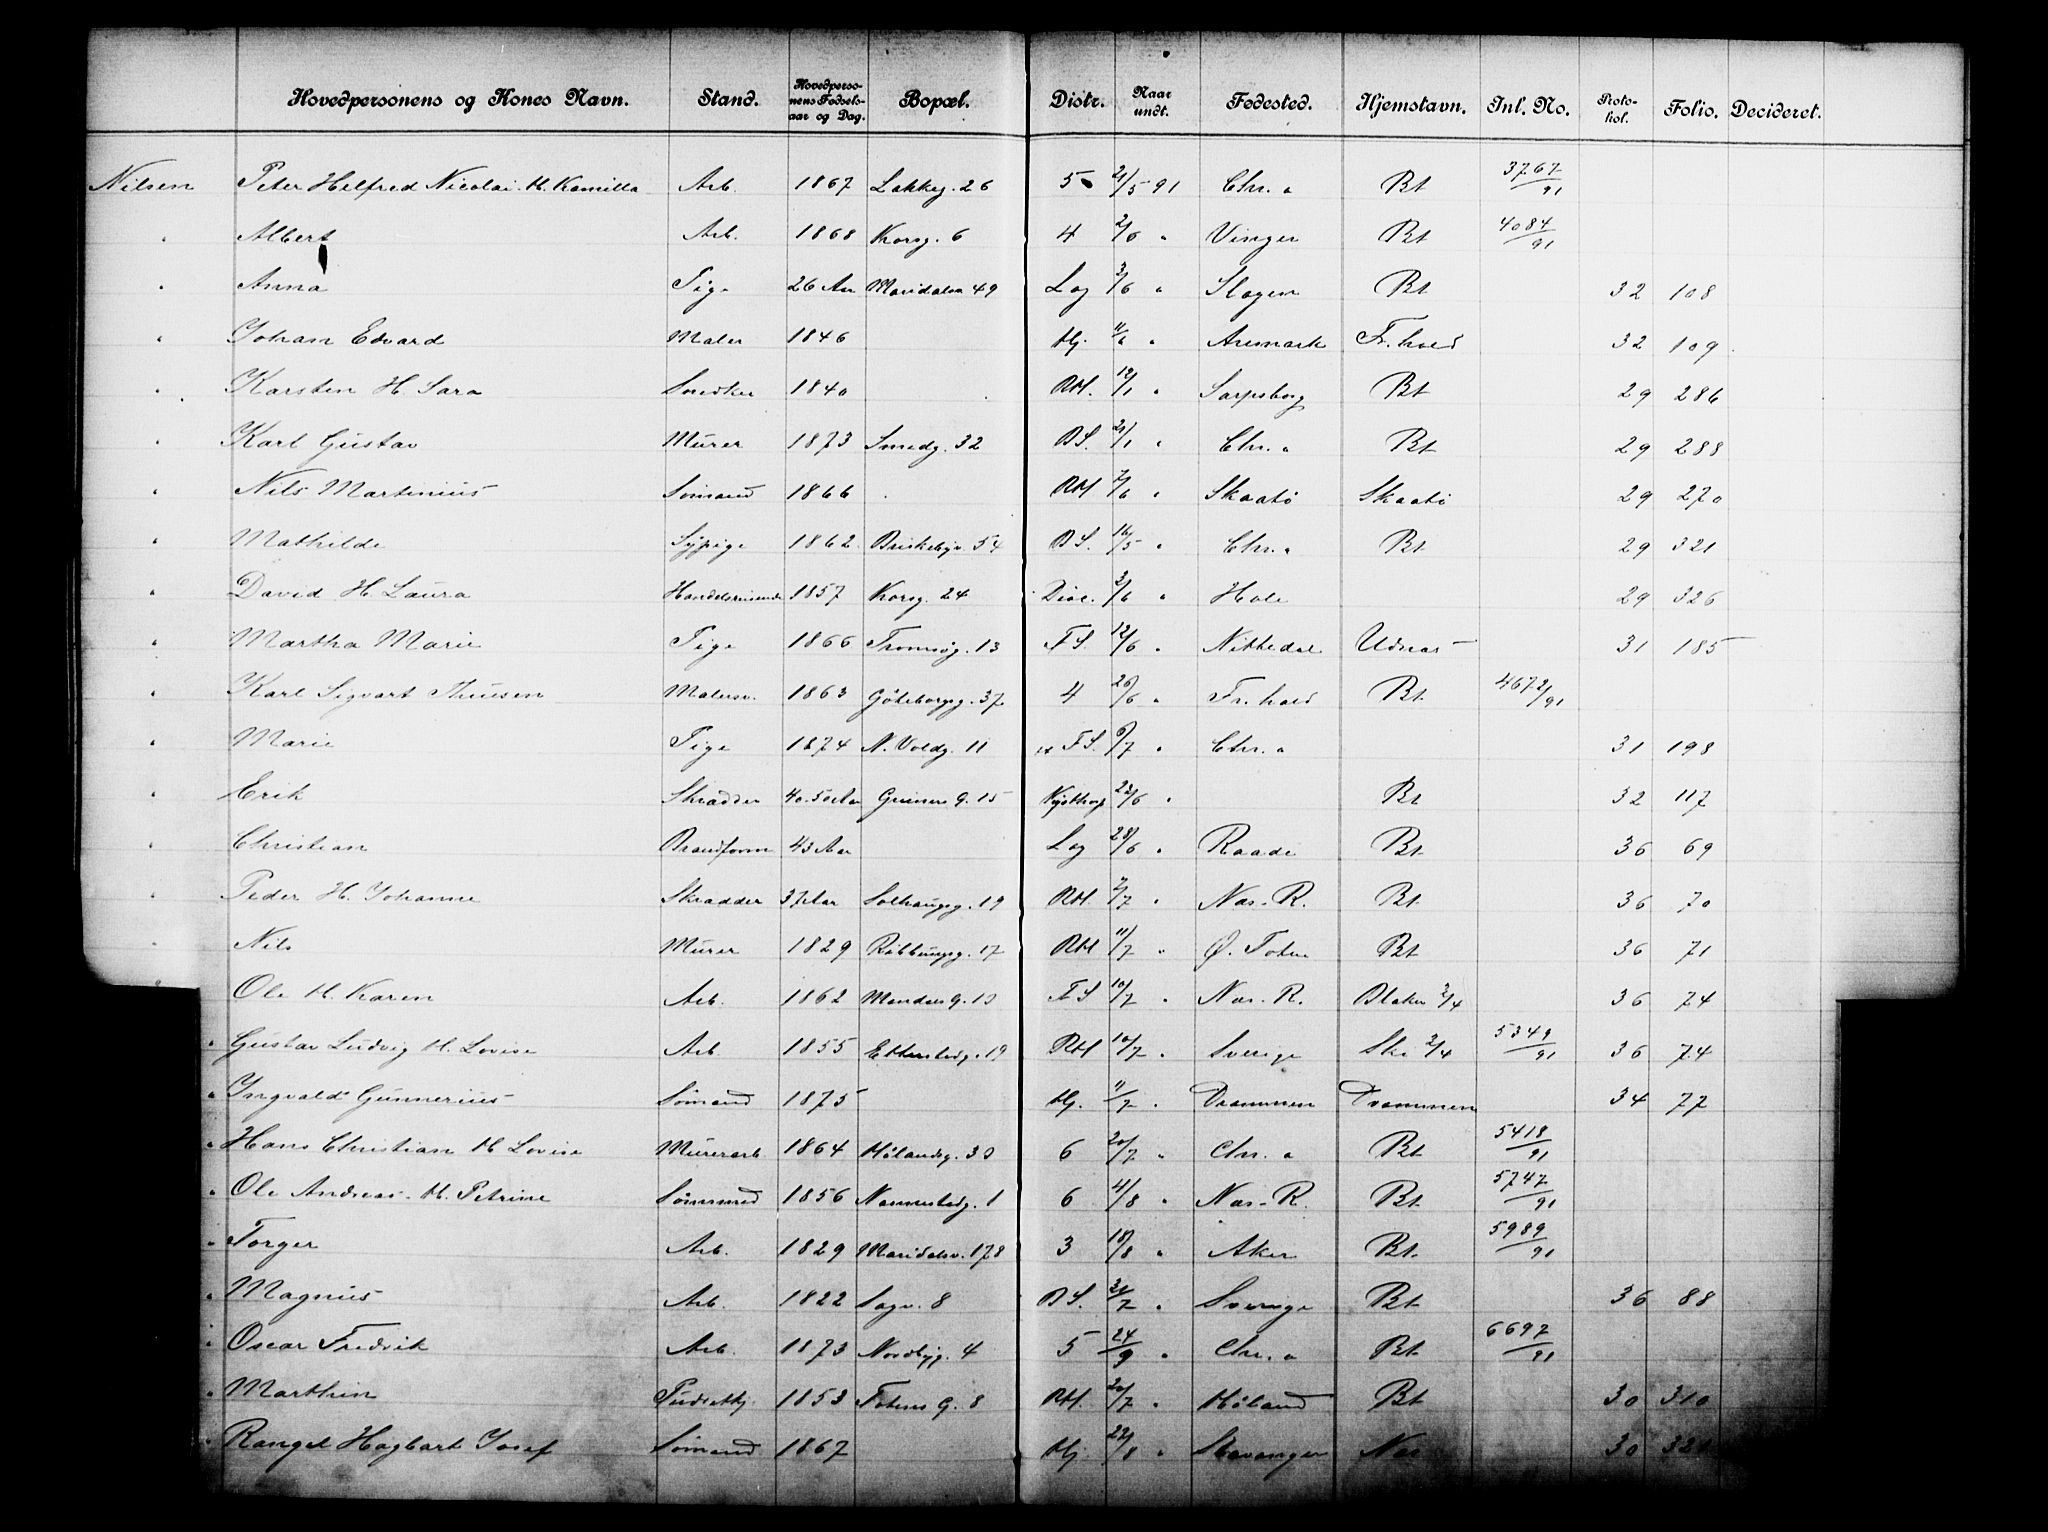 Hovedpersonens og Kones Navn. Stand. Hovedpersonens Fødselsaar og Dag. Bopæl. Distr. Naar undt. Fødested. Hjemstavn. Inl. No. Protokol. Folio. Decideret.
Nilsen Peter Hilfred Nicolai H. Kamilla Arb. 1867 Lakkeg. 26 5 21/5 91 Chr.a Bt 3767/91
" Albert Arb. 1868 Korsg. 6 4 2/6 " Vinger Bt 4084/91
" Anna Pige 26 Aar Maridalsv 49 Log 3/6 " Slagen Bt 32 108
" Johan Edvard Maler 1846 Hj. 11/6 " Aremark Fr.hald 32 109
" Karsten H. Sara Snedker 1840 RH. 12/1 " Sarpsborg Bt 29 286
" Karl Gustav Murer 1873 Smedg. 32 BS. 21/1 " Chr.a Bt 29 288
" Nils Martinius Sømand 1866 RH 7/6 " Skaatø Skaatø 29 270
" Mathilde Sypige 1862 Briskebyv. 54 BS. 16/5 " Chr.a Bt 29 321
" David H. Laura Handelsreisende 1857 Korsg. 24 Diac. 3/6 " Hole 29 326
" Martha Marie Pige 1866 Tromsøg. 13 FS. 12/6 " Nittedal Udnæs 31 185
" Karl Sigvart Thuesen Malersv. 1863 Göteborgsg. 37 4 26/6 " Fr.hald Bt 4672/91
" Marie Pige 1874 N. Voldg. 11 FS. 6/7 " Chr.a 31 198
" Erik Skrædder 40-50 Aar Grüners g. 15 22/6 " Bt 32 117
" Christian Brandform 43 Aar Log 28/6 " Raade Bt 36 69
" Peder H. Johanne Skrædder 37 Aar Solhaugsg. 19 RH. 7/7 " Næs-R. Bt 36 70
" Nils Murer 1829 Røhbungsg. 17 RH 11/7 " Ø. Toten Bt 36 71
" Ole H. Karen Arb. 1862 Mandals g. 10 FS 10/7 " Næs-R. Blaker 2/4 36 74
" Gustav Ludvig H. Lovise Arb. 1855 Etterstadg. 19 RH 10/7 " Sverige Ski 2/4 5349/91 36 74
" Ingvald Gunnerius Sømand 1875 Hj. 11/7 " Drammen Drammen 34 77
" Hans Christian H Lovise Murerarb 1864 Hølandsg. 30 6 20/7 " Chr.a Bt 5418/91
" Ole Andreas H. Petrine Tømmermd 1856 Nannestadg. 1 6 4/8 " Næs-R. Bt 5747/91
" Torger Arb. 1829 Maridalsv. 178 3 18/8 " Aker Bt. 5989/91
" Magnus Arb. 1822 Sagv. 8 BS. 21/7 " Sverige Bt 36 88
" Oscar Fredrik Arb. 1873 Nordbyg. 4 5 24/9 " Chr.a Bt 6697/91
" Marthin 1853 Totens g. 8 RH. 20/7 " Høland Bt 30 310
" Rangel Hagbart Josef Sømand 1867 Hj. 22/8 " Stavanger Næs 30